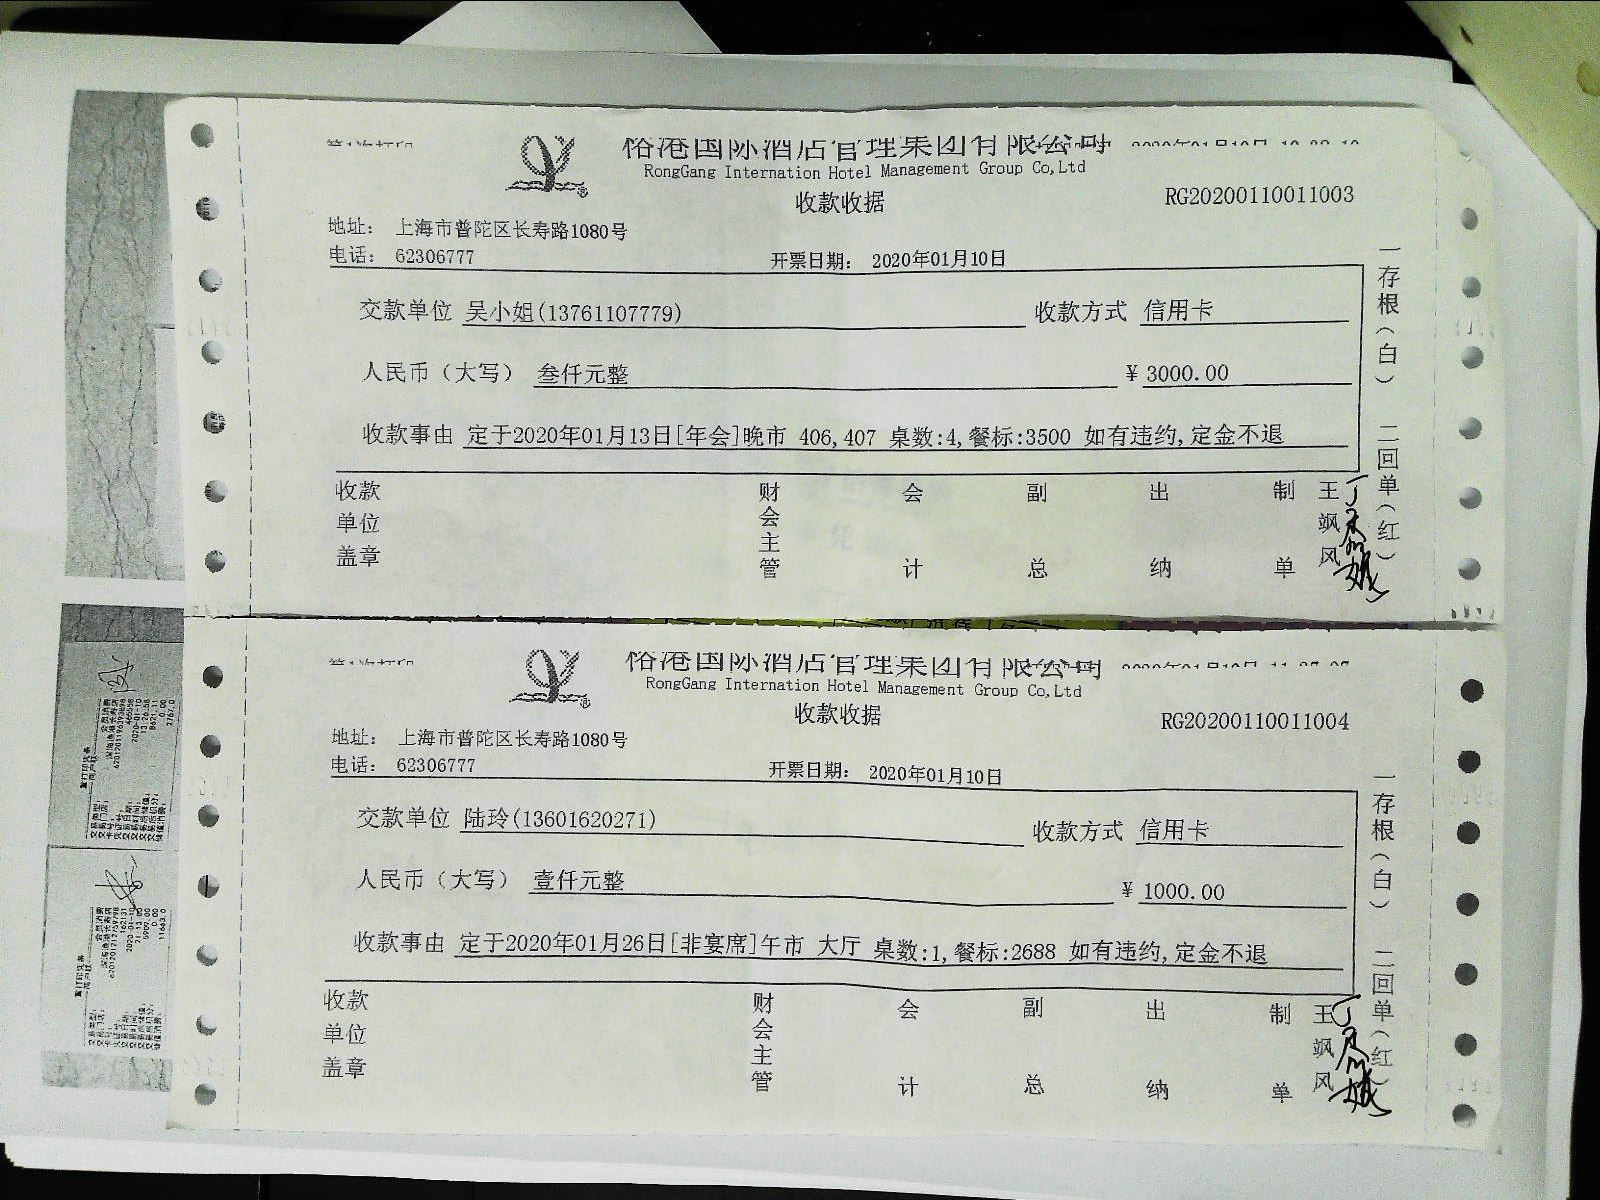 裕港国际酒店管理集团有限公司
RongGang Internation Hotel Management Group Co,Ltd
收款收据
RG20200110011003
地址： 上海市普陀区长寿路1080号
电话： 62306777
开票日期： 2020年01月10日
交款单位 吴小姐(13761107779) 收款方式 信用卡
人民币（大写） 叁仟元整 ¥ 3000.00
收款事由 定于2020年01月13日[年会]晚市 406,407 桌数:4,餐标:3500 如有违约,定金不退
收款单位盖章 财会主管 会计 副总 出纳 制单 王飒风
一存根（白） 二回单（红）
裕港国际酒店管理集团有限公司
RongGang Internation Hotel Management Group Co,Ltd
收款收据
RG20200110011004
地址： 上海市普陀区长寿路1080号
电话： 62306777
开票日期： 2020年01月10日
交款单位 陆玲(13601620271) 收款方式 信用卡
人民币（大写） 壹仟元整 ¥ 1000.00
收款事由 定于2020年01月26日[非宴席]午市 大厅 桌数:1,餐标:2688 如有违约,定金不退
收款单位盖章 财会主管 会计 副总 出纳 制单 王飒风
一存根（白） 二回单（红）